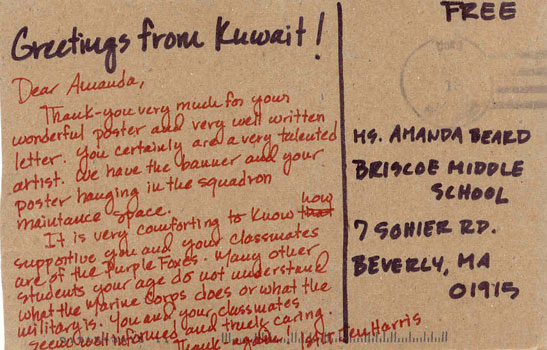 Greetings from Kuwait!
Dear Amanda,
Thank-you very much for your
wonderful poster and very well written
letter. You certainly are a very talented
artist. We have the banner and your
poster hanging in the squadron
maintance space.
It is very comforting to know that how
supportive you and your classmates
are of the Purple Foxes. Many other
students your age do not understand
what the Marine Corps does or what the
military is. You and your classmates
seem well informed and truely caring.
Thank again! Jen Harris
FREE
MS. AMANDA BEARD
BRISCOE MIDDLE
SCHOOL
7 SOHIER RD.
BEVERLY, MA
01915